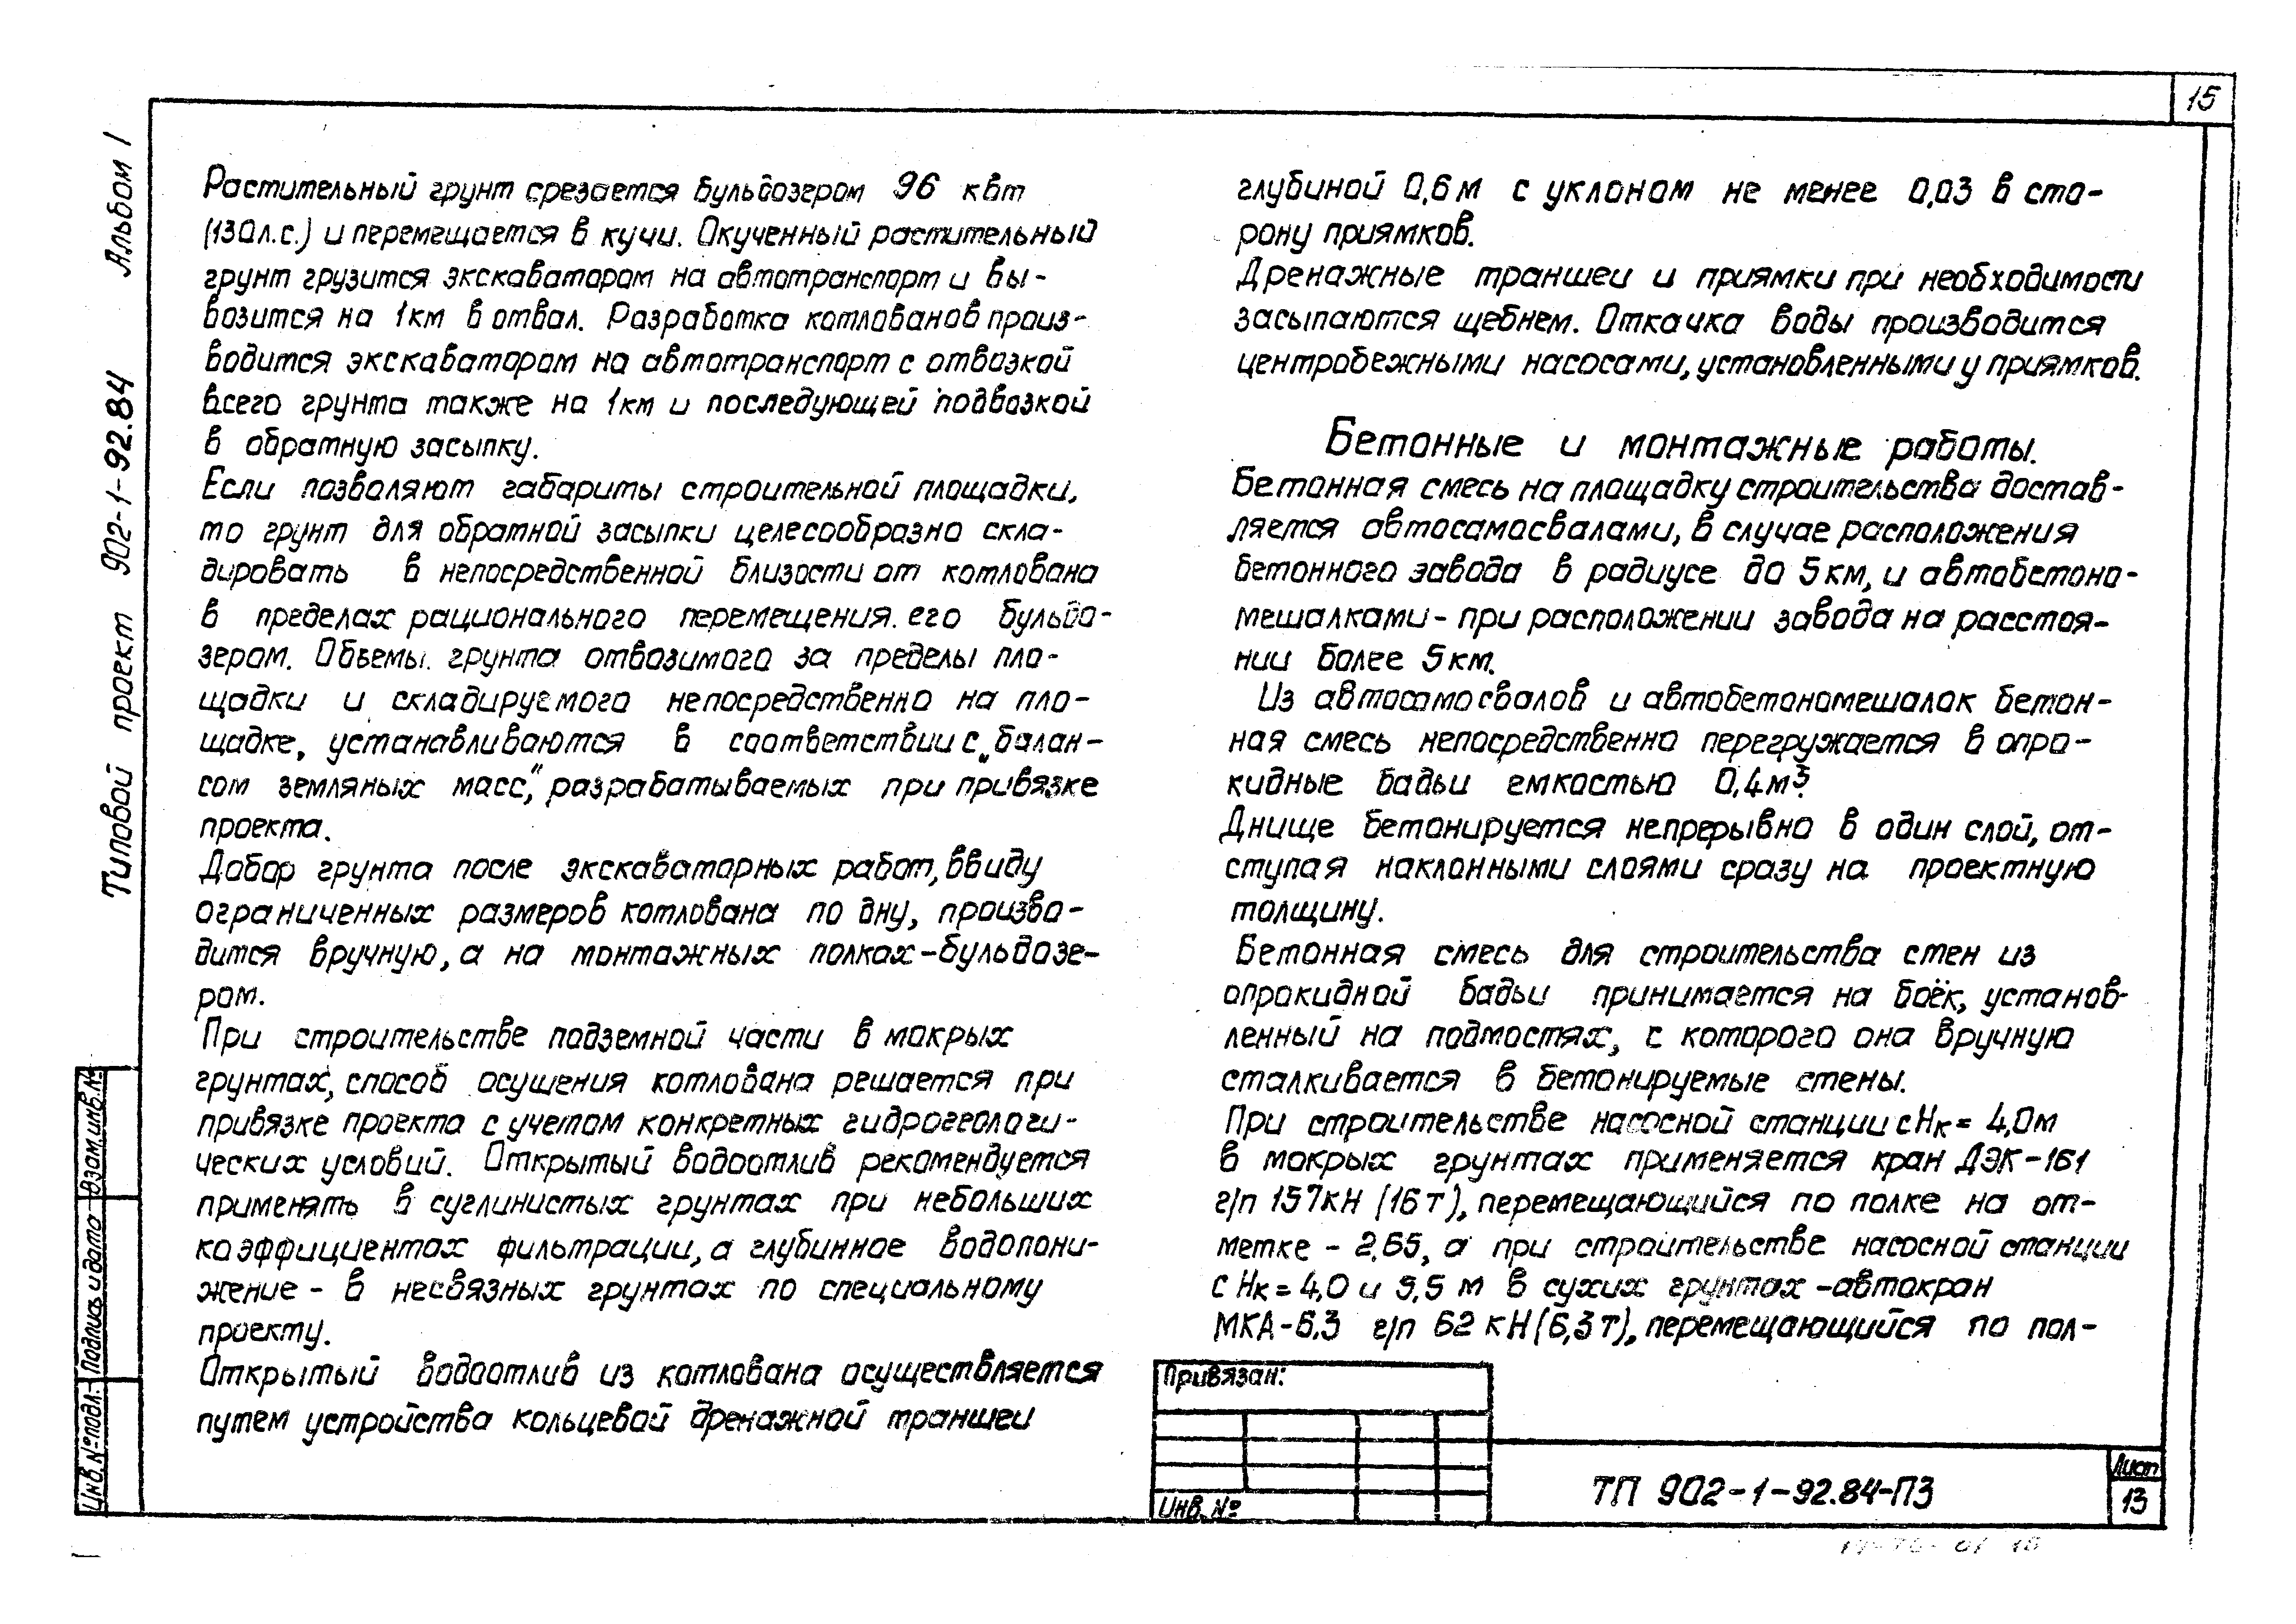 15
Альбом I
Типовой проект 902-1-92.84
Растительный грунт срезается бульдозером 96 квт
(130л.с.) и перемещается в кучи. Окученный растительный
грунт грузится экскаватором на автотранспорт и вы-
возится на 1км в отвал. Разработка котлованов произ-
водится экскаватором на автотранспорт с отвозкой
всего грунта также на 1км и последующей подвозкой
в обратную засыпку.
Если позволяют габариты строительной площадки,
то грунт для обратной засыпки целесообразно скла-
дировать в непосредственной близости от котлована
в пределах рационального перемещения его бульдо-
зером. Объемы грунта отвозимого за пределы пло-
щадки и складируемого непосредственно на пло-
щадке, устанавливаются в соответствии с „балан-
сом земляных масс“, разрабатываемых при привязке
проекта.
Добор грунта после экскаваторных работ, ввиду
ограниченных размеров котлована по дну, произво-
дится вручную, а на монтажных полках-бульдозе-
ром.
При строительстве подземной части в мокрых
грунтах, способ осушения котлована решается при
привязке проекта с учетом конкретных гидрогеологи-
ческих условий. Открытый водоотлив рекомендуется
применять в суглинистых грунтах при небольших
коэффициентах фильтрации, а глубинное водопони-
жение - в несвязных грунтах по специальному
проекту.
Открытый водоотлив из котлована осуществляется
путем устройства кольцевой дренажной траншеи
глубиной 0,6м с уклоном не менее 0,03 в сто-
рону приямков.
Дренажные траншеи и приямки при необходимости
засыпаются щебнем. Откачка воды производится
центробежными насосами, установленными у приямков.
Бетонные и монтажные работы.
Бетонная смесь на площадку строительства достав-
ляется автосамосвалами, в случае расположения
бетонного завода в радиусе до 5км, и автобетоно-
мешалками - при расположении завода на расстоя-
нии более 5км.
Из автосамосвалов и автобетономешалок бетон-
ная смесь непосредственно перегружается в опро-
кидные бадьи емкостью 0,4м³.
Днище бетонируется непрерывно в один слой, от-
ступая наклонными слоями сразу на проектную
толщину.
Бетонная смесь для строительства стен из
опрокидной бадьи принимается на боёк, установ-
ленный на подмостях, с которого она вручную
сталкивается в бетонируемые стены.
При строительстве насосной станции с Нк = 4,0м
в мокрых грунтах применяется кран ДЭК-161
г/п 157кН (16 т), перемещающийся по полке на от-
метке - 2,65, а при строительстве насосной станции
с Нк = 4,0 и 5,5 м в сухих грунтах -автокран
МКА-6,3 г/п 62 кН (6,3 т), перемещающийся по пол-
Взам.инв.№
Подпись и дата
Инв.№подл.
Привязан:
Инв. №
ТП 902-1-92.84-ПЗ
Лист
13